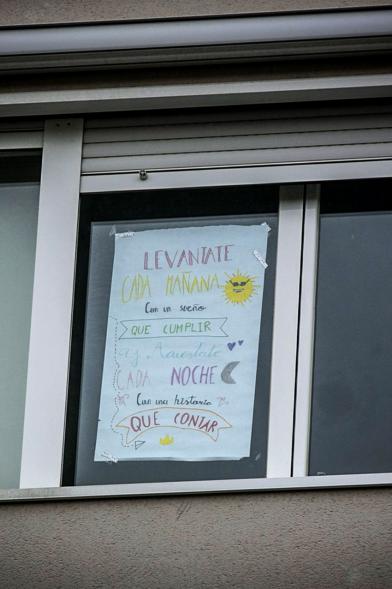 LEVANTATE
CADA MAÑANA
Con un sueño
QUE CUMPLIR
y Acuestate
CADA NOCHE
Con una historia
QUE CONTAR